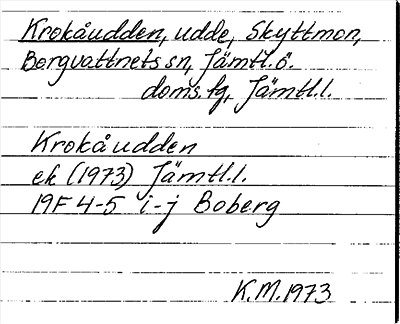 Krokåudden, udde, Skyttmon,
Borgvattnets sn, Jämtl.ö.
doms.fg, Jämtl.l.
Krokåudden
ek (1973) Jämtl.l.
19F 4-5 i-j Boberg
K.M. 1973